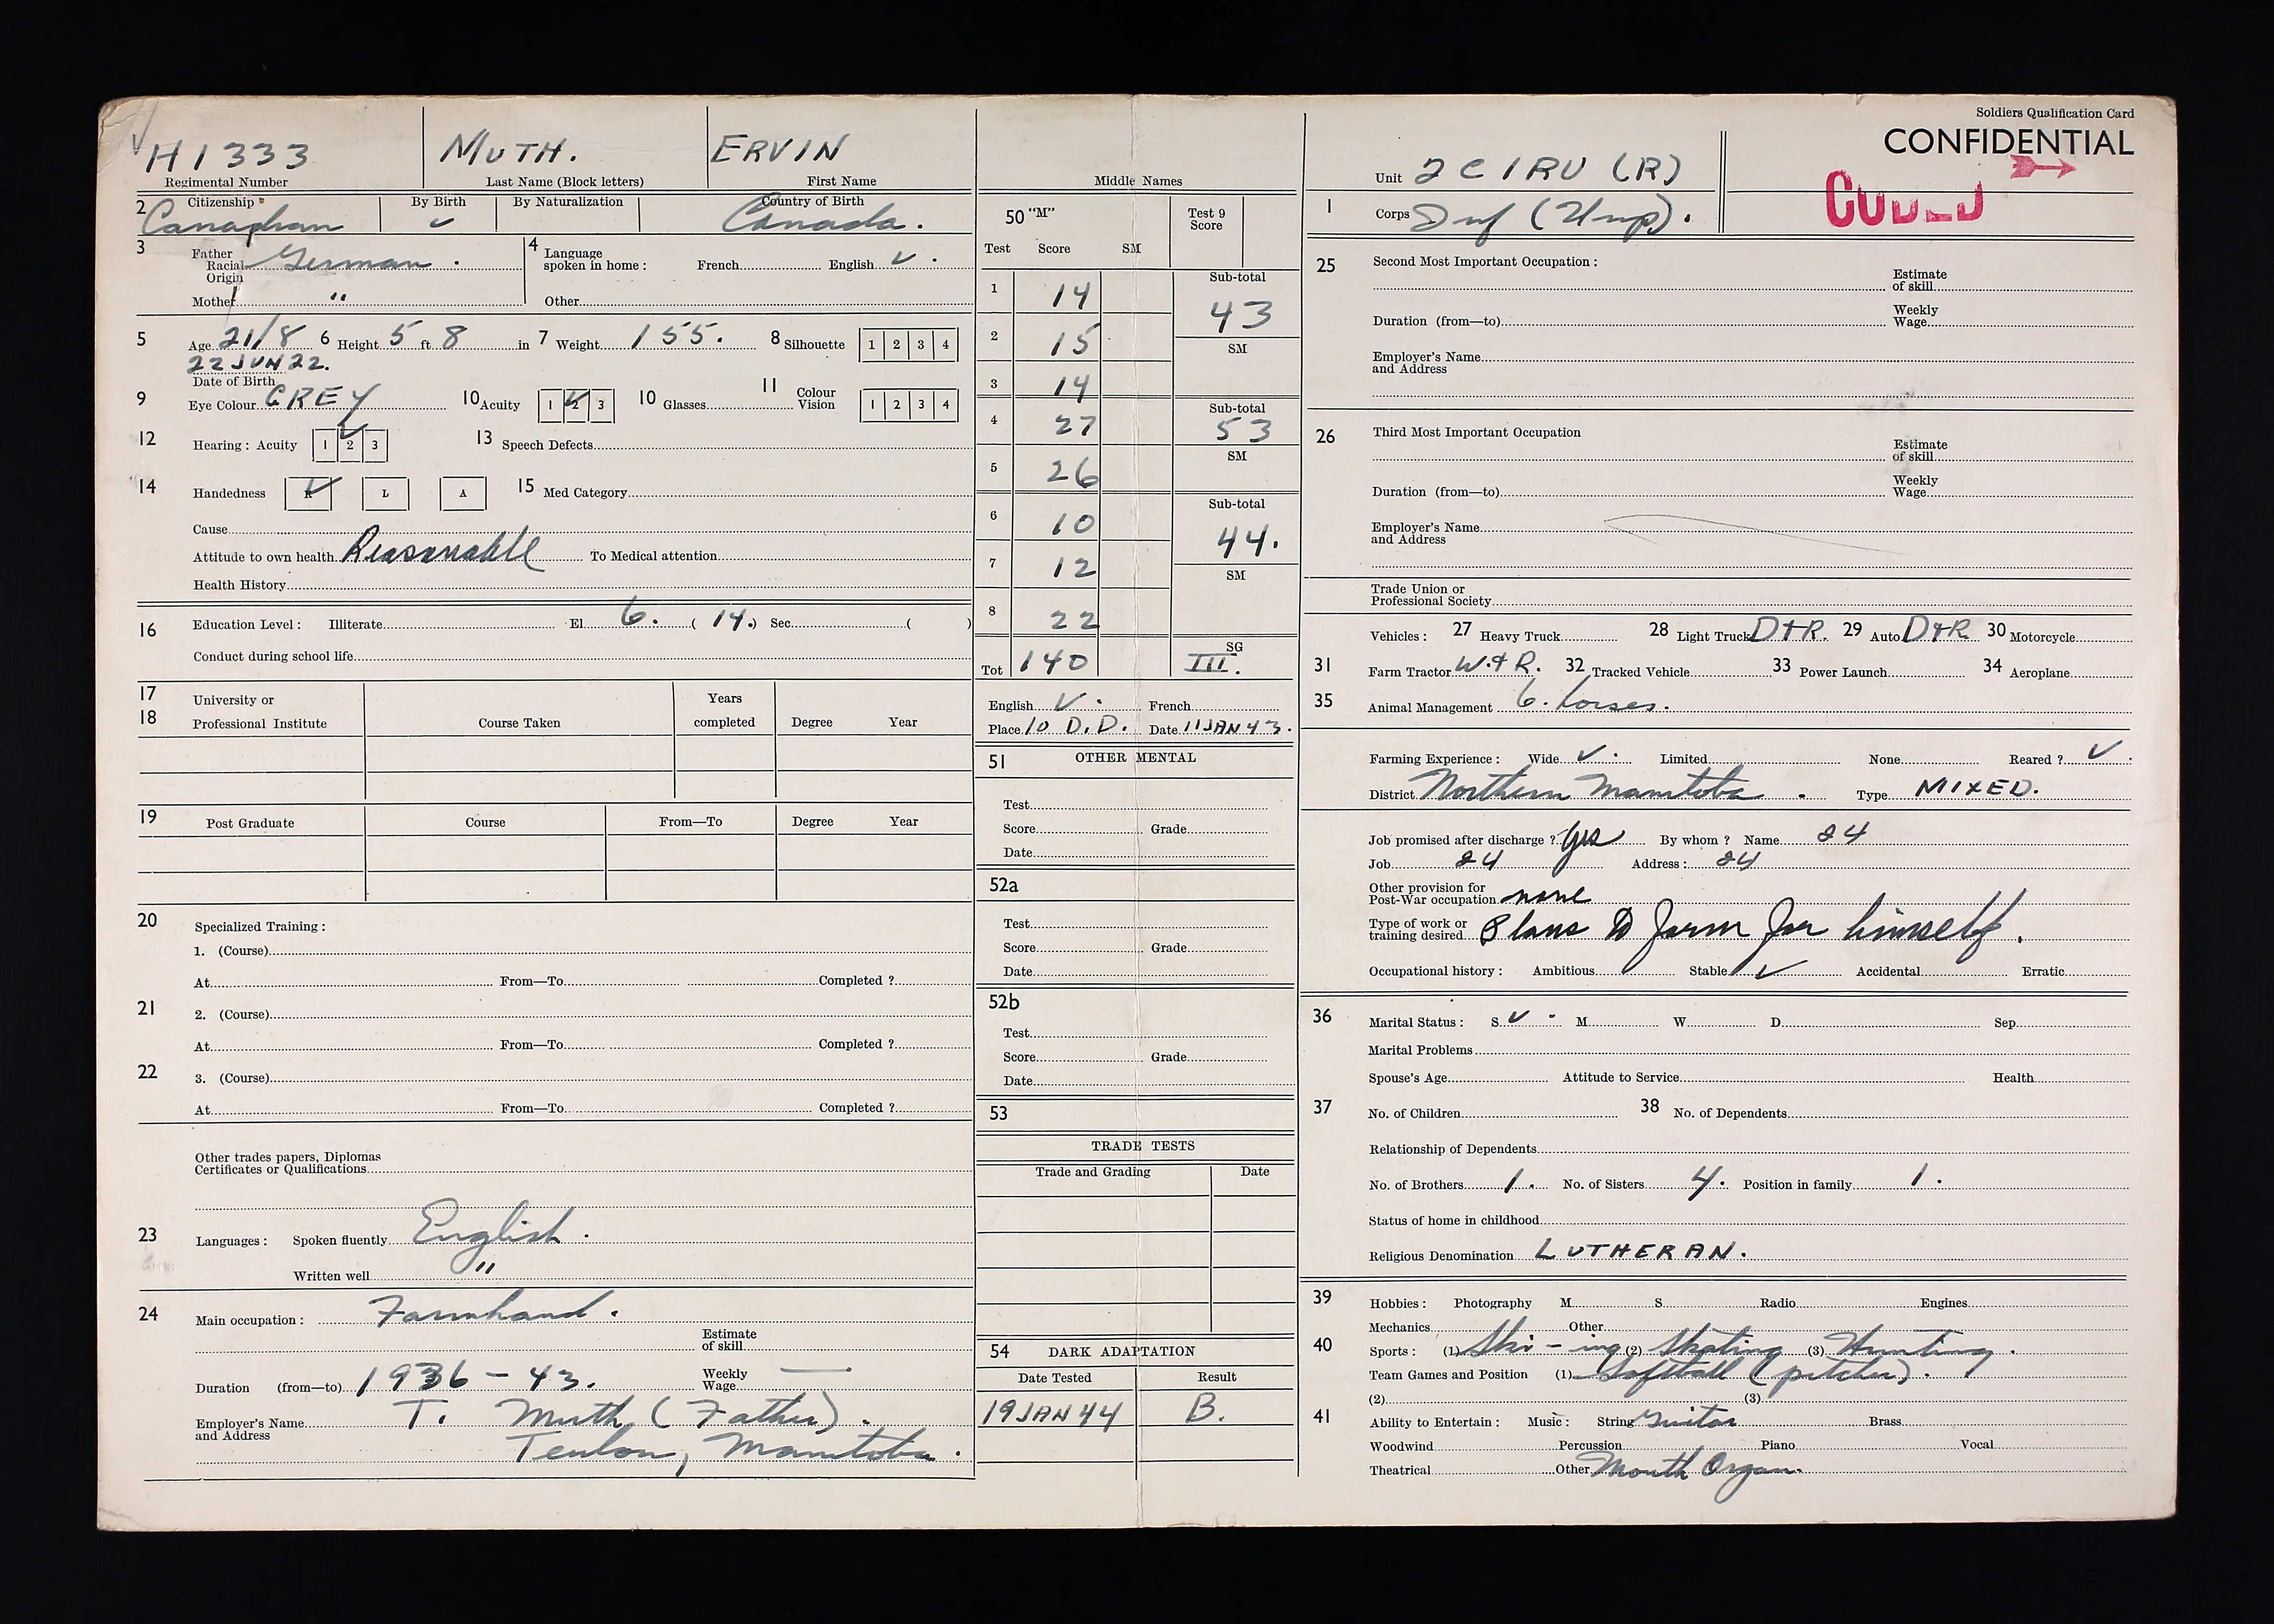 Soldiers Qualification Card
CONFIDENTIAL
CODED
H1333 MUTH. ERVIN
Regimental Number Last Name (Block letters) First Name Middle Names
2 Citizenship By Birth By Naturalization Country of Birth
Canadian ✓ Canada.
3 Father Racial Origin German.
Mother "
4 Language spoken in home: French English ✓.
Other
5 Age 21/8 6 Height 5 ft 8 in 7 Weight 155. 8 Silhouette 1 2 3 4
22 JUN 22.
Date of Birth
9 Eye Colour GREY 10 Acuity 1 2 3 10 Glasses 11 Colour Vision 1 2 3 4
12 Hearing: Acuity 1 2 3 13 Speech Defects
14 Handedness R L A 15 Med Category
Cause
Attitude to own health Reasonable To Medical attention
Health History
16 Education Level: Illiterate El 6. ( 14.) Sec ( )
Conduct during school life
17 University or
18 Professional Institute Course Taken Years completed Degree Year
19 Post Graduate Course From—To Degree Year
20 Specialized Training:
1. (Course)
At From—To Completed ?
21 2. (Course)
At From—To Completed ?
22 3. (Course)
At From—To Completed ?
Other trades papers, Diplomas
Certificates or Qualifications
23 Languages: Spoken fluently English.
Written well "
24 Main occupation: Farmhand.
Estimate of skill
Duration (from—to) 1936 - 43. Weekly Wage —
Employer's Name and Address T. Muth (Father).
Teulon, Manitoba.
50 "M" Test 9 Score
Test Score SM
1 14 Sub-total
43
2 15 SM
3 14
4 27 Sub-total
53
5 26 SM
6 10 Sub-total
44.
7 12 SM
8 22
Tot 140 SG III.
English ✓. French
Place 10 D.D. Date 11 JAN 43.
51 OTHER MENTAL
Test
Score Grade
Date
52a
Test
Score Grade
Date
52b
Test
Score Grade
Date
53
TRADE TESTS
Trade and Grading Date
54 DARK ADAPTATION
Date Tested Result
19 JAN 44 B.
Unit 2 C I R U (R)
1 Corps Inf
25 Second Most Important Occupation:
Estimate of skill
Duration (from—to) Weekly Wage
Employer's Name and Address
26 Third Most Important Occupation
Estimate of skill
Duration (from—to) Weekly Wage
Employer's Name and Address
Trade Union or
Professional Society
Vehicles: 27 Heavy Truck 28 Light Truck D+R. 29 Auto D+R. 30 Motorcycle
31 Farm Tractor W.+R. 32 Tracked Vehicle 33 Power Launch 34 Aeroplane
35 Animal Management 6. horses.
Farming Experience: Wide ✓. Limited None Reared ? ✓
District Northern Manitoba. Type MIXED.
Job promised after discharge ? Yes By whom ? Name 24
Job 24 Address: 24
Other provision for
Post-War occupation none
Type of work or
training desired Plans to farm for himself.
Occupational history: Ambitious Stable ✓ Accidental Erratic
36 Marital Status: S ✓. M W D Sep
Marital Problems
Spouse's Age Attitude to Service Health
37 No. of Children 38 No. of Dependents
Relationship of Dependents
No. of Brothers 1. No. of Sisters 4. Position in family 1.
Status of home in childhood
Religious Denomination LUTHERAN.
39 Hobbies: Photography M S Radio Engines
Mechanics Other
40 Sports: (1) Ski-ing (2) Skating (3) Hunting.
Team Games and Position (1) Softball (pitcher).
(2) (3)
41 Ability to Entertain: Music: String Guitar Brass
Woodwind Percussion Piano Vocal
Theatrical Other Mouth Organ.